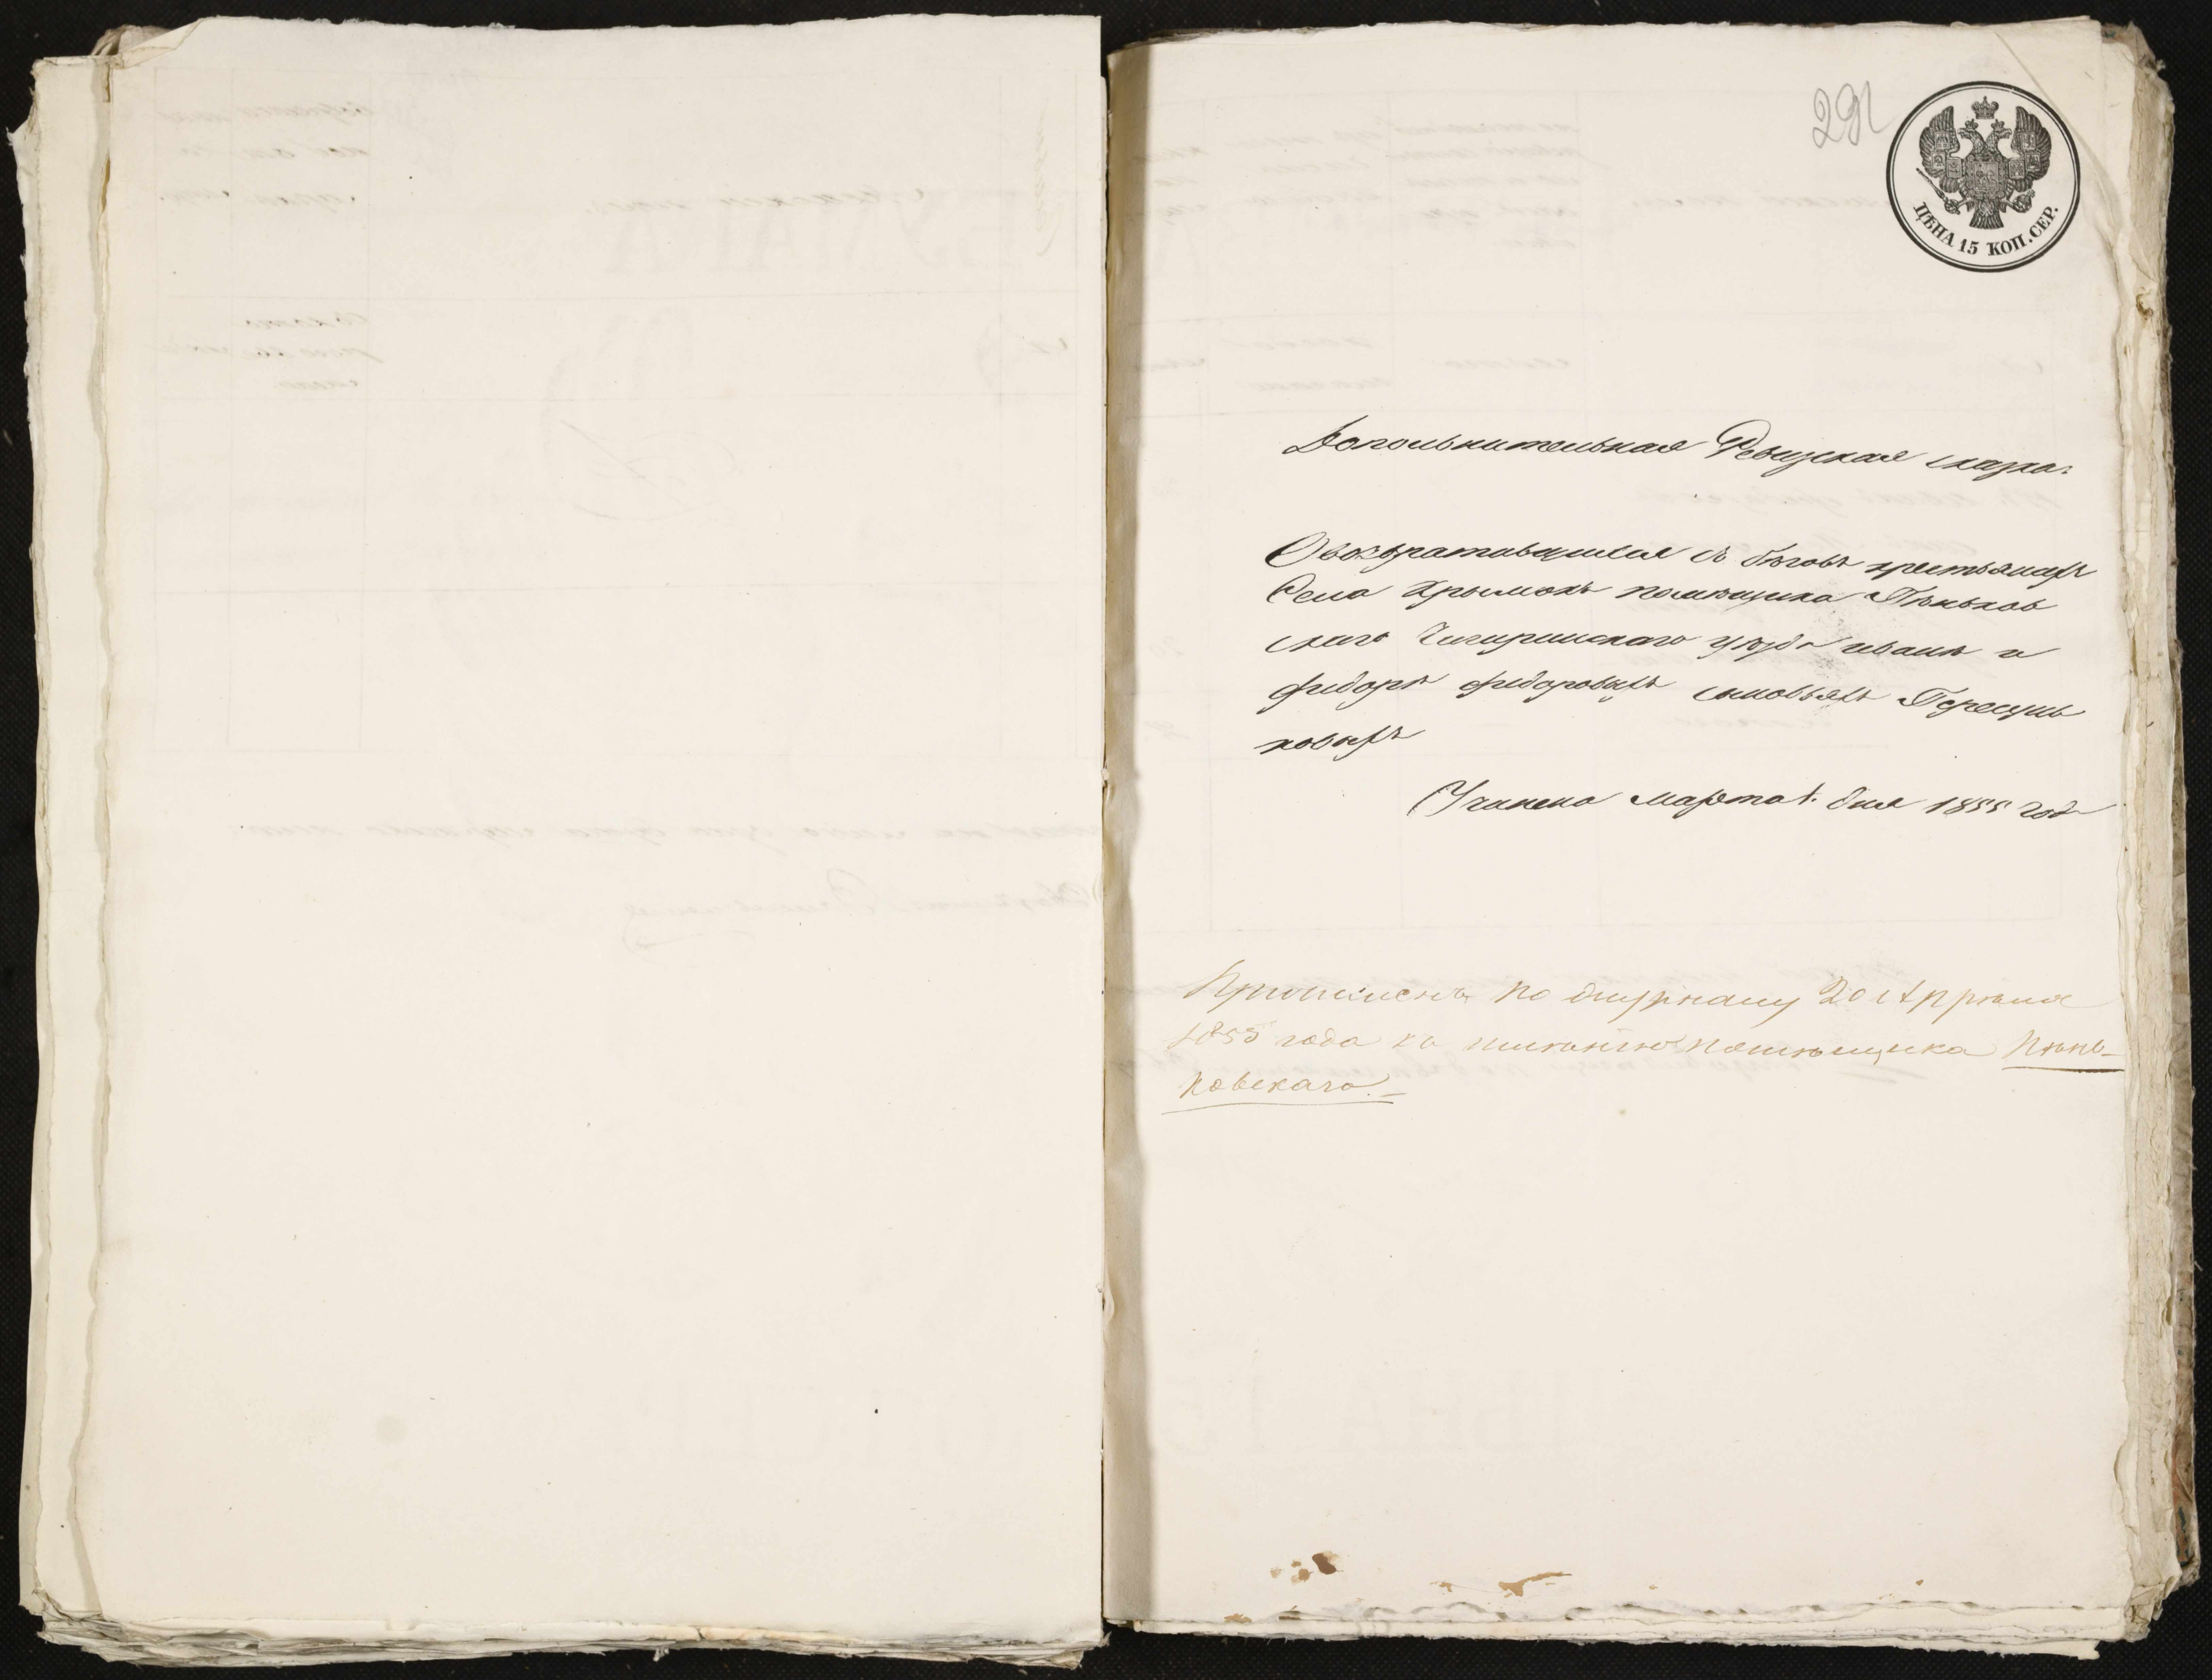 291
ЦѢНА 15 КОП. СЕР.
Дополнительная Ревизская сказка:
О возвратившихся съ бѣговъ крестьянахъ
Села Крымокъ помѣщика Пѣньков
скаго Чигиринскаго уѣзда иванѣ и
федорѣ федоровыхъ сыновьяхъ
новыхъ
Учинена марта 1. дня 1855 года
по журналу 20 Апрѣля
1855 года къ имѣнію помѣщика Пѣнь-
ковскаго.-